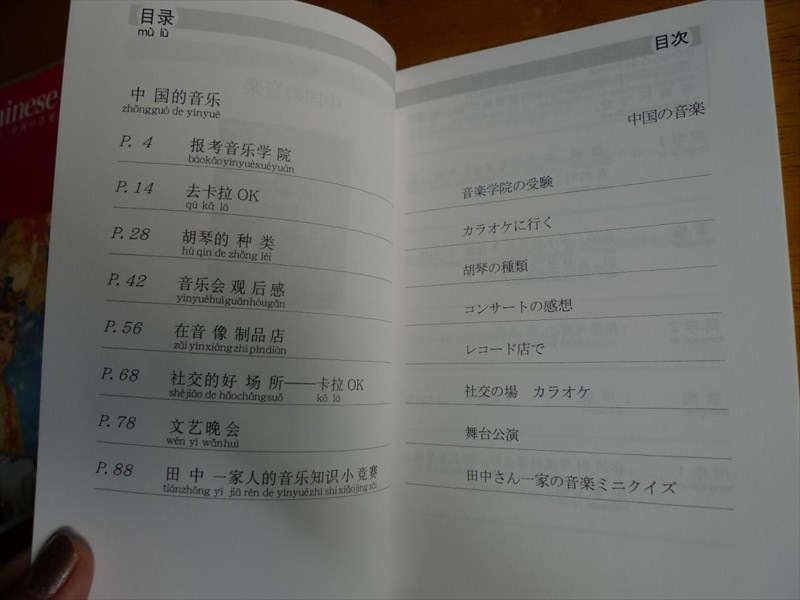 hinese
目录
mù lù
中国的音乐
zhōngguó de yīnyuè
P. 4 报考音乐学院
bàokǎoyīnyuèxuéyuàn
P. 14 去卡拉OK
qù kǎ lā
P. 28 胡琴的种类
hú qín de zhǒng lèi
P. 42 音乐会观后感
yīnyuèhuìguānhòugǎn
P. 56 在音像制品店
zài yīnxiàng zhì pǐndiàn
P. 68 社交的好场所——卡拉OK
shèjiāo de hǎochǎngsuǒ kǎ lā
P. 78 文艺晚会
wén yì wǎnhuì
P. 88 田中一家人的音乐知识小竞赛
tiánzhōng yì jiā rén de yīnyuèzhī shi xiǎojìng sài
目次
中国の音楽
音楽学院の受験
カラオケに行く
胡琴の種類
コンサートの感想
レコード店で
社交の場 カラオケ
舞台公演
田中さん一家の音楽ミニクイズ